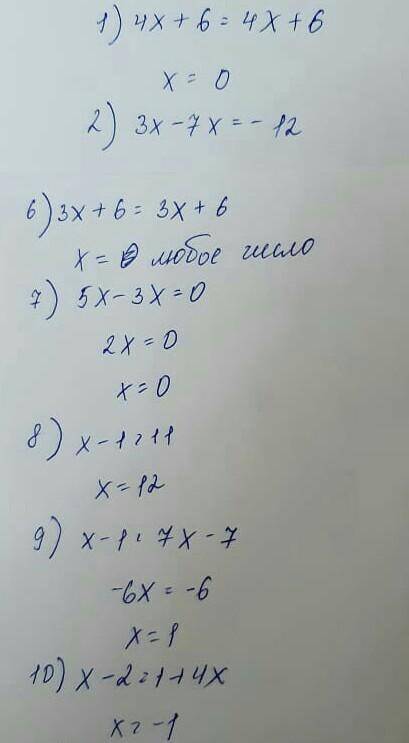 1) 4x + 6 = 4x + 6
x = 0
2) 3x - 7x = - 12
6) 3x + 6 = 3x + 6
x = любое число
7) 5x - 3x = 0
2x = 0
x = 0
8) x - 1 = 11
x = 12
9) x - 1 = 7x - 7
-6x = -6
x = 1
10) x - 2 = 1 + 4x
x = -1